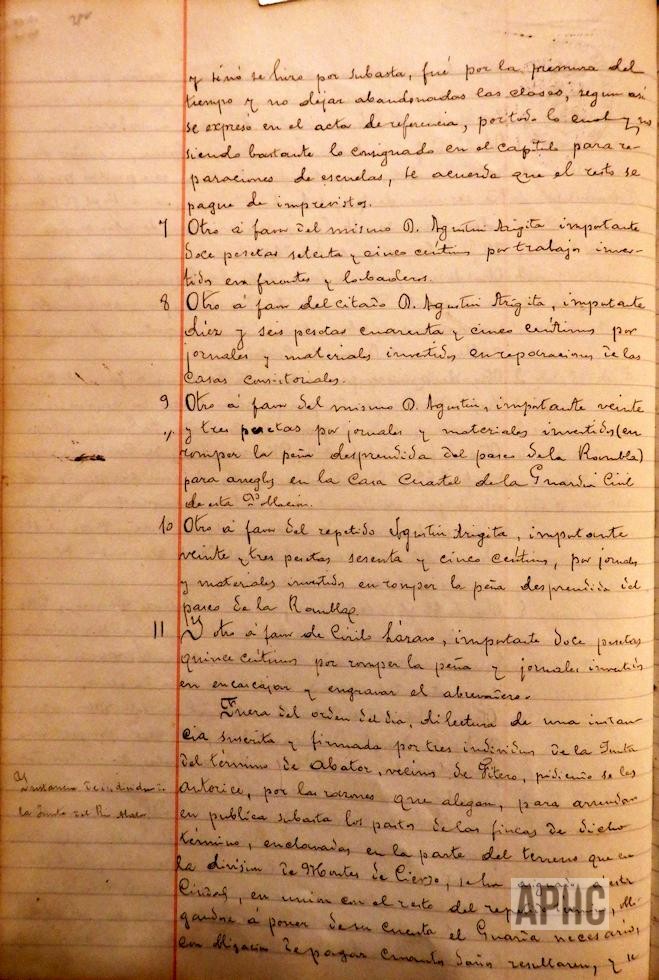 y sinó se hizo por subasta, fué por la premura del
tiempo y no dejar abandonadas las clases, segun asi
se expresó en el acta de referencia, por todo lo cual y no
siendo bastante lo consignado en el capitulo para re-
paraciones de escuelas, se acuerda que el resto se
pague de imprevistos.
7 Otro á favor del mismo D. Agustin Arigita importante
doce pesetas setenta y cinco céntimos por trabajos inver-
tidos en fuentes y labaderos.
8 Otro á favor del citado D. Agustin Arigita, importante
diez y seis pesetas cuarenta y cinco céntimos por
jornales y materiales invertidos en reparaciones de las
Casas consistoriales.
9 Otro á favor del mismo D. Agustin, importante veinte
y tres pesetas por jornales y materiales invertidos (en
romper la peña desprendida del paseo de la Rambla)
para arreglos en la Casa Cuartel de la Guardia Civil
de esta Poblacion.
10 Otro á favor del repetido Agustin Arigita, importante
veinte y tres pesetas sesenta y cinco céntimos, por jornales
y materiales invertidos en romper la peña desprendida del
paseo de la Rambla.
11 Y otro á favor de Cirilo Lázaro, importante doce pesetas
quince centimos por romper la peña y jornales invertidos
en encascajar y engravar el abrevadero.
Fuera del orden del dia, di lectura de una instan-
cia suscrita y firmada por tres individuos de la Junta
del término de Abatores, vecinos de Fitero, pidiendo se les
autorice, por las razones que alegan, para arrendar
Instancia de individuos de
la Junta del
en publica subasta los pastos de las fincas de dicho
término, enclavadas en la parte del terreno que en
la division de Montes de Cierzo, se ha asignado á esta
Ciudad, en union con el resto del
gandose á poner de su cuenta el Guarda necesario,
con obligacion de pagar cuantos daños resultaren, y
APHC